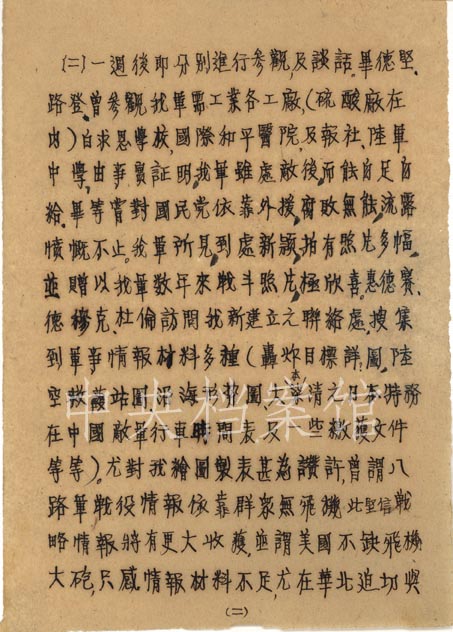 (二)一週後即分别進行參觀,及談話。畢德堅、
路登、曾參觀我軍需工業各工廠,(硫酸廠在
内)白求恩學校,國際和平醫院,及報社、陸軍
中學,由事實証明,我軍雖處敵後,而能自足自
給,畢等嘗對國民党依靠外援,腐敗無能,流露
憤慨不止。我軍所見,到處新穎,拍有照片多幅,
並贈以我軍数年來戰斗照片,極欣喜。惠德賽、
德穆克、杜倫訪問我新建立之聯絡處,搜集
到軍事情報材料多種(轟炸目標詳圖,陸
空救護站圖沿海形勢圖,大本營清之日本特務
在中國敵軍行車時間表及一些繳獲文件
等等)。尤對我繪圖製表甚為讚許,曾謂八
路軍戰役情報依靠群衆無飛機此堅信戰
略情報將有更大收獲,並謂美國不缺飛機
大砲,只感情報材料不足,尤在華北迫切與
(二)
中央档案馆